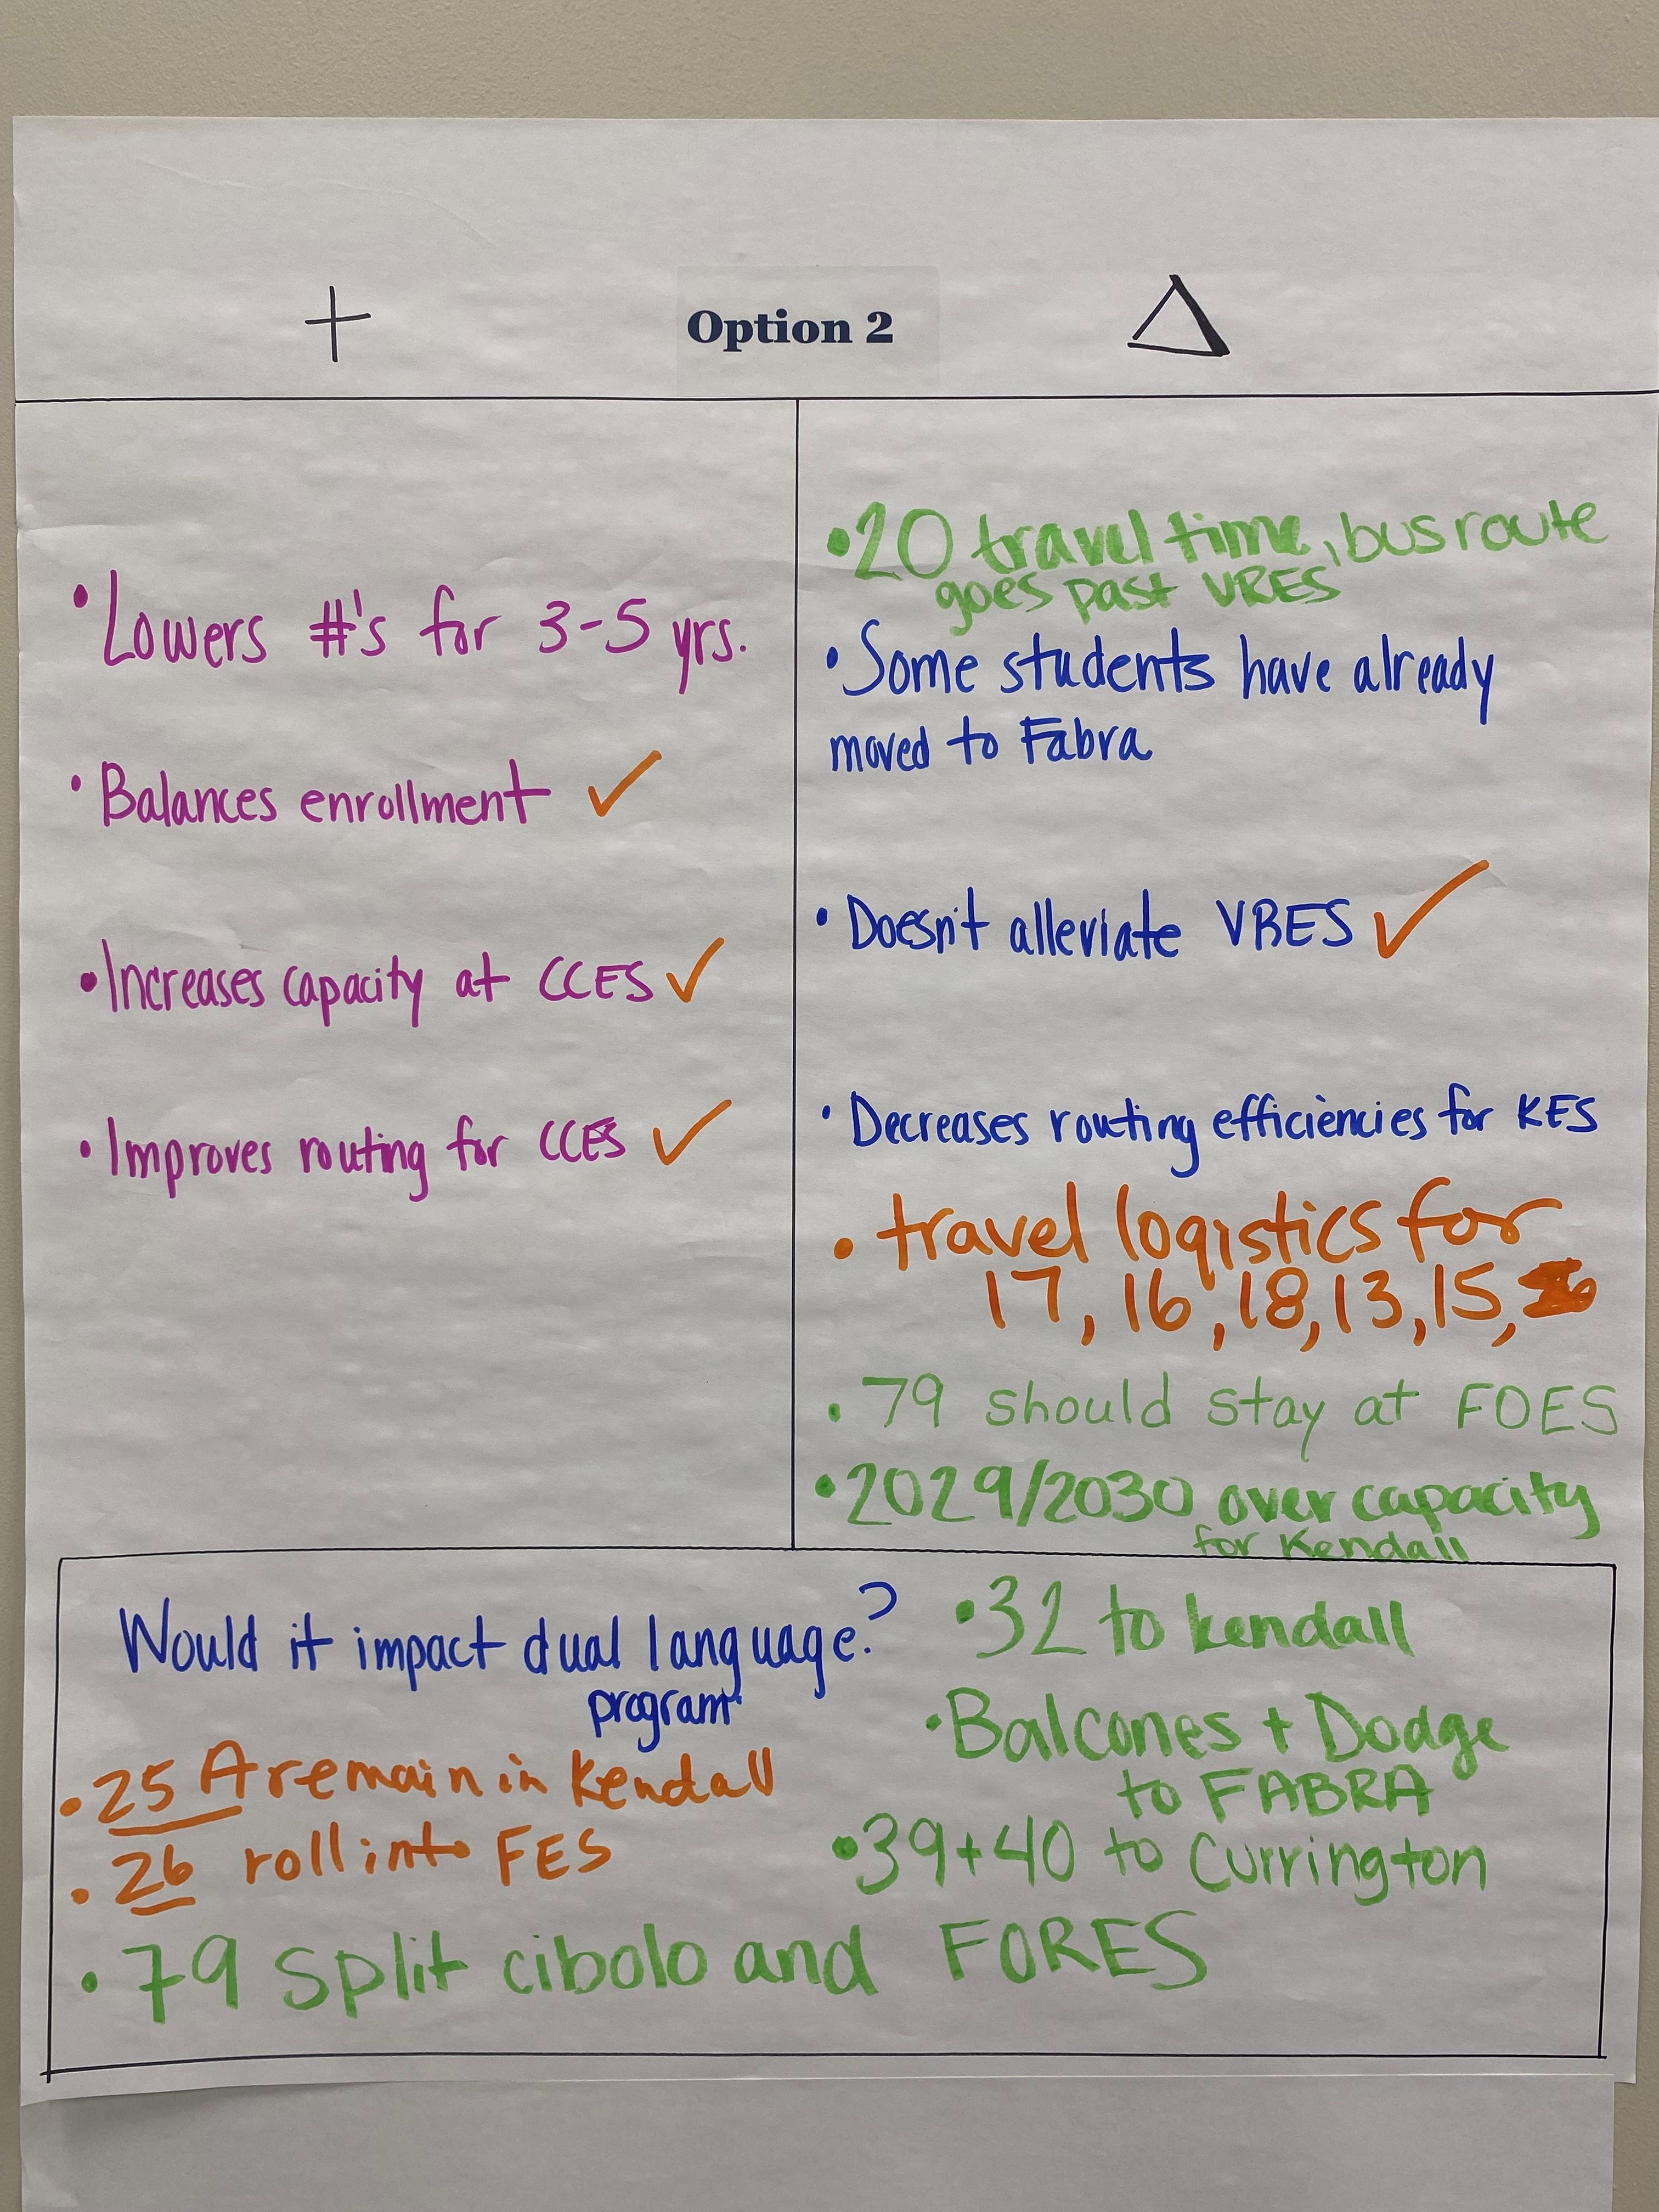 + Option 2 Δ
•Lowers #'s for 3-5 yrs.
•Balances enrollment ✓
•Increases capacity at CCES ✓
•Improves routing for CCES ✓
•20 travel time, bus route
goes past VRES
•Some students have already
moved to Fabra
•Doesn't alleviate VRES ✓
•Decreases routing efficiencies for KES
•travel logistics for
17, 16, 18, 13, 15,
•79 should stay at FOES
•2029/2030 over capacity
for Kendall
Would it impact dual language?
program
•25 A remain in Kendall
•26 roll into FES
•32 to kendall
•Balcones + Dodge
to FABRA
•39+40 to Currington
•79 split cibolo and FORES